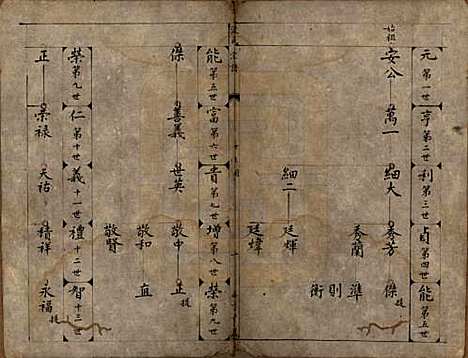 始祖
元 第一世
亨 第二世
利 第三世
貞 第四世
能 第五世
安公 萬一 細大 秀芳 傑
秀蘭 準
則
衡
細二 廷輝
廷煒
能 第五世
富 第六世
貴 第七世
增 第八世
榮 第九世
傑 善義 世英 敬中 正
敬和 直
敬賢
榮 第九世
仁 第十世
義 十一世
禮 十二世
智 十三世
正 榮祿 天祐 積祥 永福